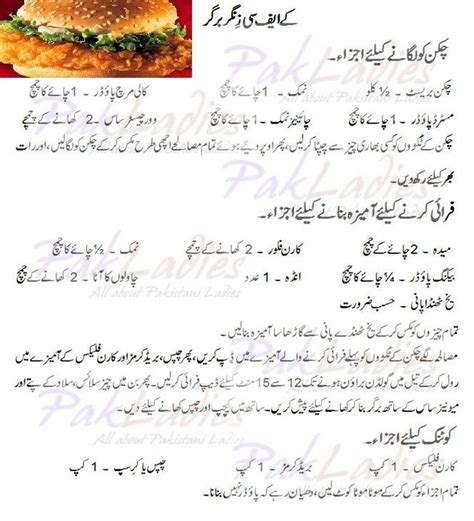 کے ایف سی زنگر برگر
چکن کو لگانے کیلئے اجزاء۔
چکن بریسٹ ۔ ½ کلو نمک ۔ 1 چائے کا چمچ کالی مرچ پاؤڈر ۔ 1 چائے کا چمچ
مسٹرڈ پاؤڈر ۔ 1 چائے کا چمچ چائینیز نمک ۔ 1 چائے کا چمچ وورچیسٹر ساس ۔ 2 کھانے کے چمچے
چکن کے ٹکڑوں کو کسی بھاری چیز سے چپٹا کرلیں، پھر اوپر دیئے ہوئے تمام مصالحے اچھی طرح مکس کر کے چکن کو لگالیں، اور رات
بھر کیلئے رکھ دیں۔
فرائی کرنے کیلئے آمیزہ بنانے کیلئے اجزاء۔
میدہ ۔ 2 چائے کے چمچ کارن فلور ۔ 2 کھانے کے چمچے نمک ۔ ½ چائے کا چمچ
بیکنگ پاؤڈر ۔ ¼ چائے کا چمچ انڈہ ۔ 1 عدد چاولوں کا آٹا ۔ 2 کھانے کے چمچے
یخ ٹھنڈا پانی ۔ حسب ضرورت
تمام چیزوں کو مکس کر کے یخ ٹھنڈے پانی سے گاڑھا سا آمیزہ بنالیں۔
مصالحہ لگے چکن کے ٹکڑوں کو پہلے فرائی کرنے والے آمیزے میں ڈپ کریں، پھر چپس، بریڈ کرمز اور کارن فلیکس کے آمیزے میں
رول کر کے تیل میں گولڈن براؤن ہونے تک 12 سے 15 منٹ کیلئے ڈیپ فرائی کرلیں۔ پھر بن میں چیز سلائس، سلاد کے پتے اور
میونیز ساس کے ساتھ برگر بنا کر گرما گرم پیش کریں۔ ساتھ میں کیچپ اور گارلک ساس بھی کھانے کیلئے دیں۔
کوٹنگ کیلئے اجزاء۔
کارن فلیکس ۔ 1 کپ بریڈ کرمز ۔ 1 کپ چپس یا کرسپ ۔ 1 کپ
تمام اجزاء کو مکس کر کے موٹا موٹا کوٹ لیں، دھیان رہے کہ پاؤڈر نہیں بنانا۔
PakLadies
All about Pakistani Ladies
PakLadies
PakLadies
All about Pakistani Ladies
PakLadies
All about Pakistani Ladies
PakLadies